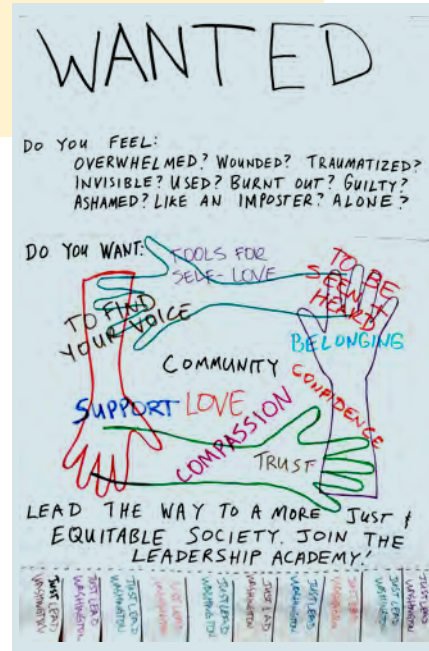 WANTED
DO YOU FEEL:
OVERWHELMED? WOUNDED? TRAUMATIZED?
INVISIBLE? USED? BURNT OUT? GUILTY?
ASHAMED? LIKE AN IMPOSTER? ALONE?
DO YOU WANT:
TOOLS FOR
SELF-LOVE
TO BE
SEEN &
HEARD
TO FIND
YOUR VOICE
BELONGING
COMMUNITY
CONFIDENCE
SUPPORT LOVE
COMPASSION
TRUST
LEAD THE WAY TO A MORE JUST &
EQUITABLE SOCIETY. JOIN THE
LEADERSHIP ACADEMY!
JUST LEAD
WASHINGTON
JUST LEAD
WASHINGTON
JUST LEAD
WASHINGTON
JUST LEAD
WASHINGTON
JUST LEAD
WASHINGTON
JUST LEAD
WASHINGTON
JUST LEAD
WASHINGTON
JUST LEAD
WASHINGTON
JUST LEAD
WASHINGTON
JUST LEAD
WASHINGTON